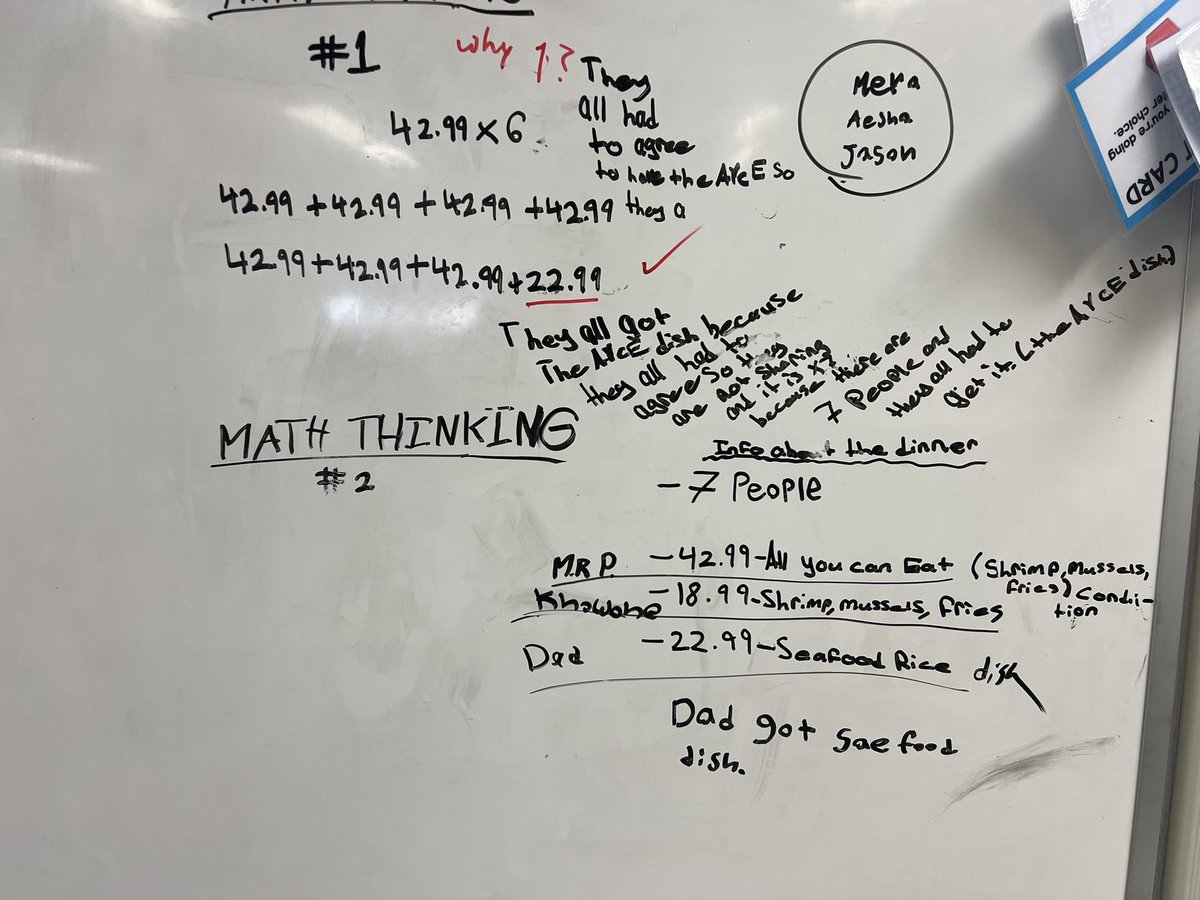 #1
why 7?
They
all had
to agree
to have the AYCE so
they a
Mera
Aesha
Jason
42.99 x 6
42.99 + 42.99 + 42.99 + 42.99
42.99 + 42.99 + 42.99 + 22.99
They all got
The AYCE dish because
they all had to
agree so they
are not sharing
and it is x7
because there are
7 People and
they all had to
get it. (the AYCE dish)
MATH THINKING
#2
Info about the dinner
- 7 People
M.R P. - 42.99 - All you can Eat (Shrimp, Mussels, fries) Condi-
tion
Khawone - 18.99 - Shrimp, mussels, fries
Dad - 22.99 - Seafood Rice dish
Dad got Saefood
dish.
you're doing
er choice.
T CARD